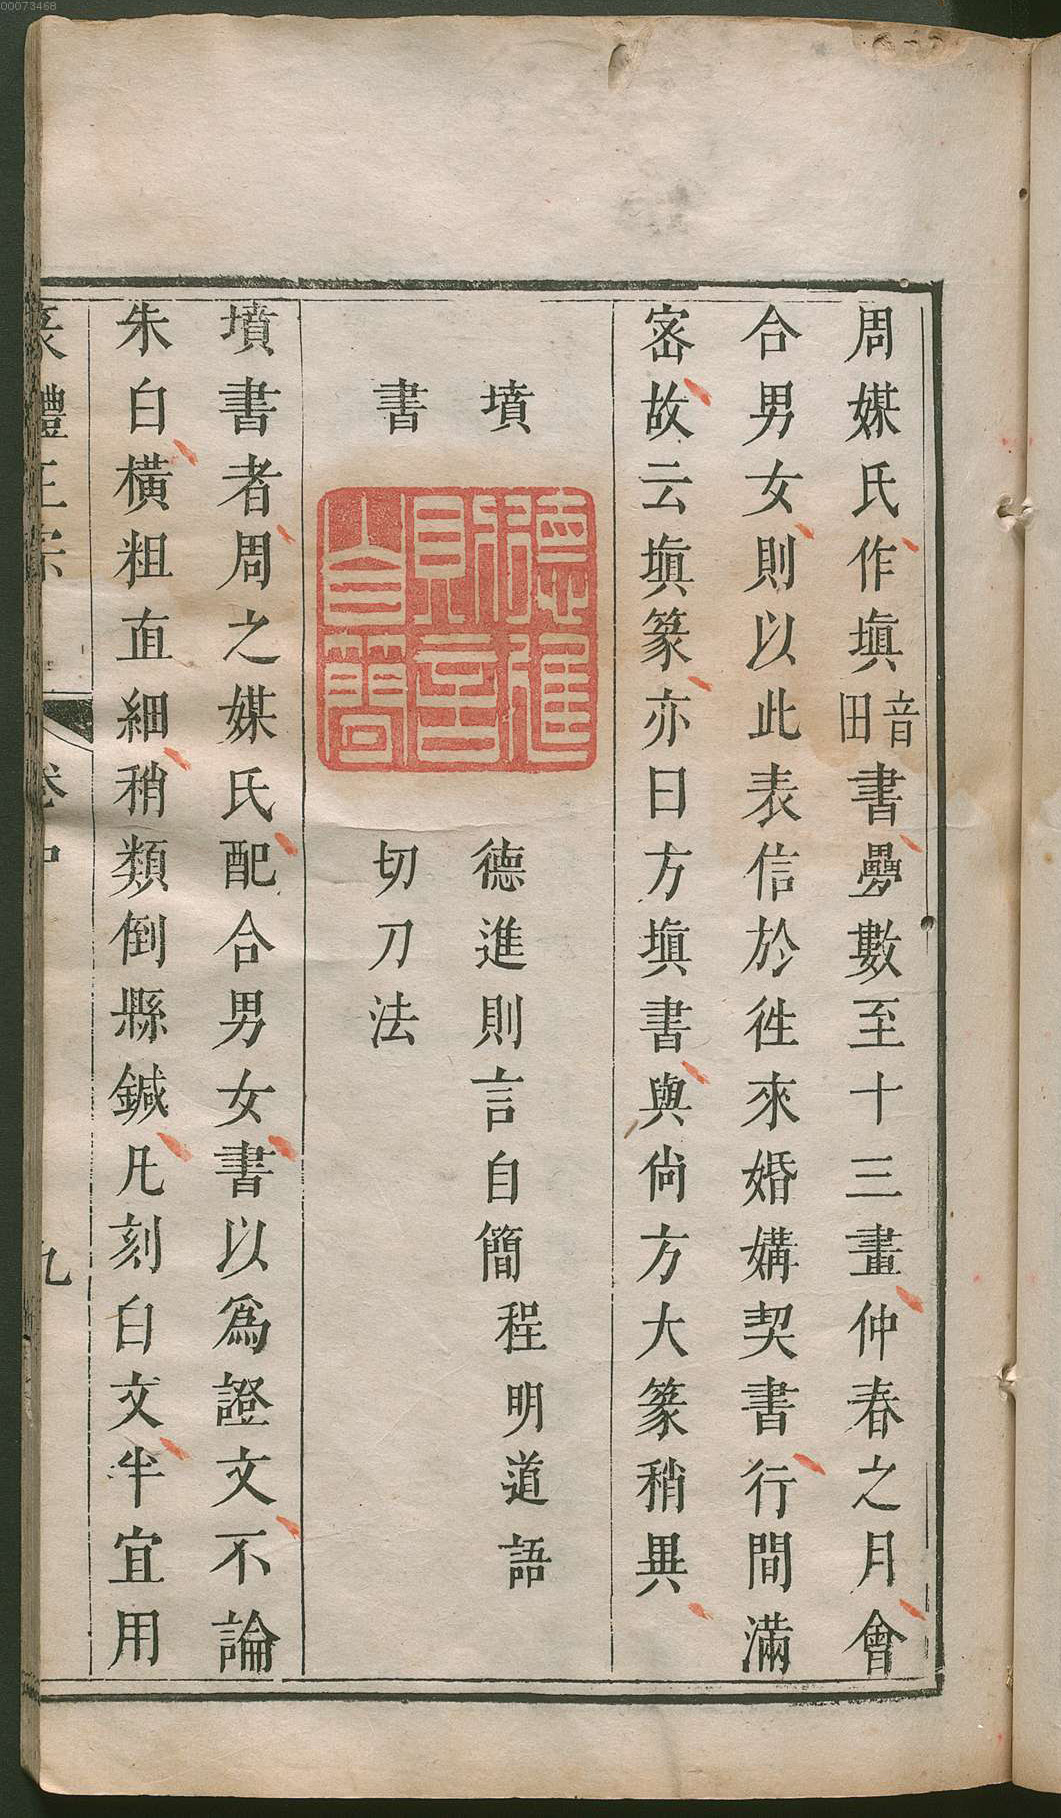 00073468
周媒氏作塡音田書疊數至十三畫仲春之月會
合男女則以此表信於徃來婚媾契書行間滿
宻故云塡篆亦曰方塡書與尙方大篆稍異
墳書
德進則言自簡程明道語
切刀法
德進則言自簡
墳書者周之媒氏配合男女書以爲證文不論
朱白橫粗直細稍類倒縣鍼凡刻白文半宜用
篆體正宗 卷中 九